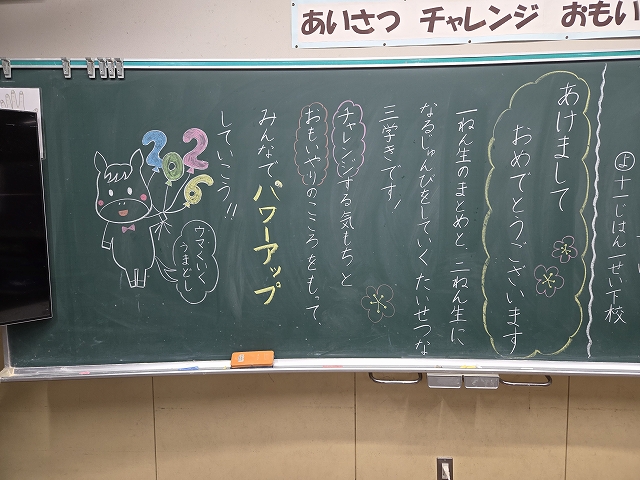 あいさつ チャレンジ おもい
㊤十一じはん一せい下校
あけまして
おめでとうございます
一ねん生のまとめと、二ねん生に
なるじゅんびをしていく たいせつな
三学きです!
チャレンジする気もちと
おもいやりのこころをもって、
みんなで パワーアップ
していこう!!
2026
ウマくいく
うまどし